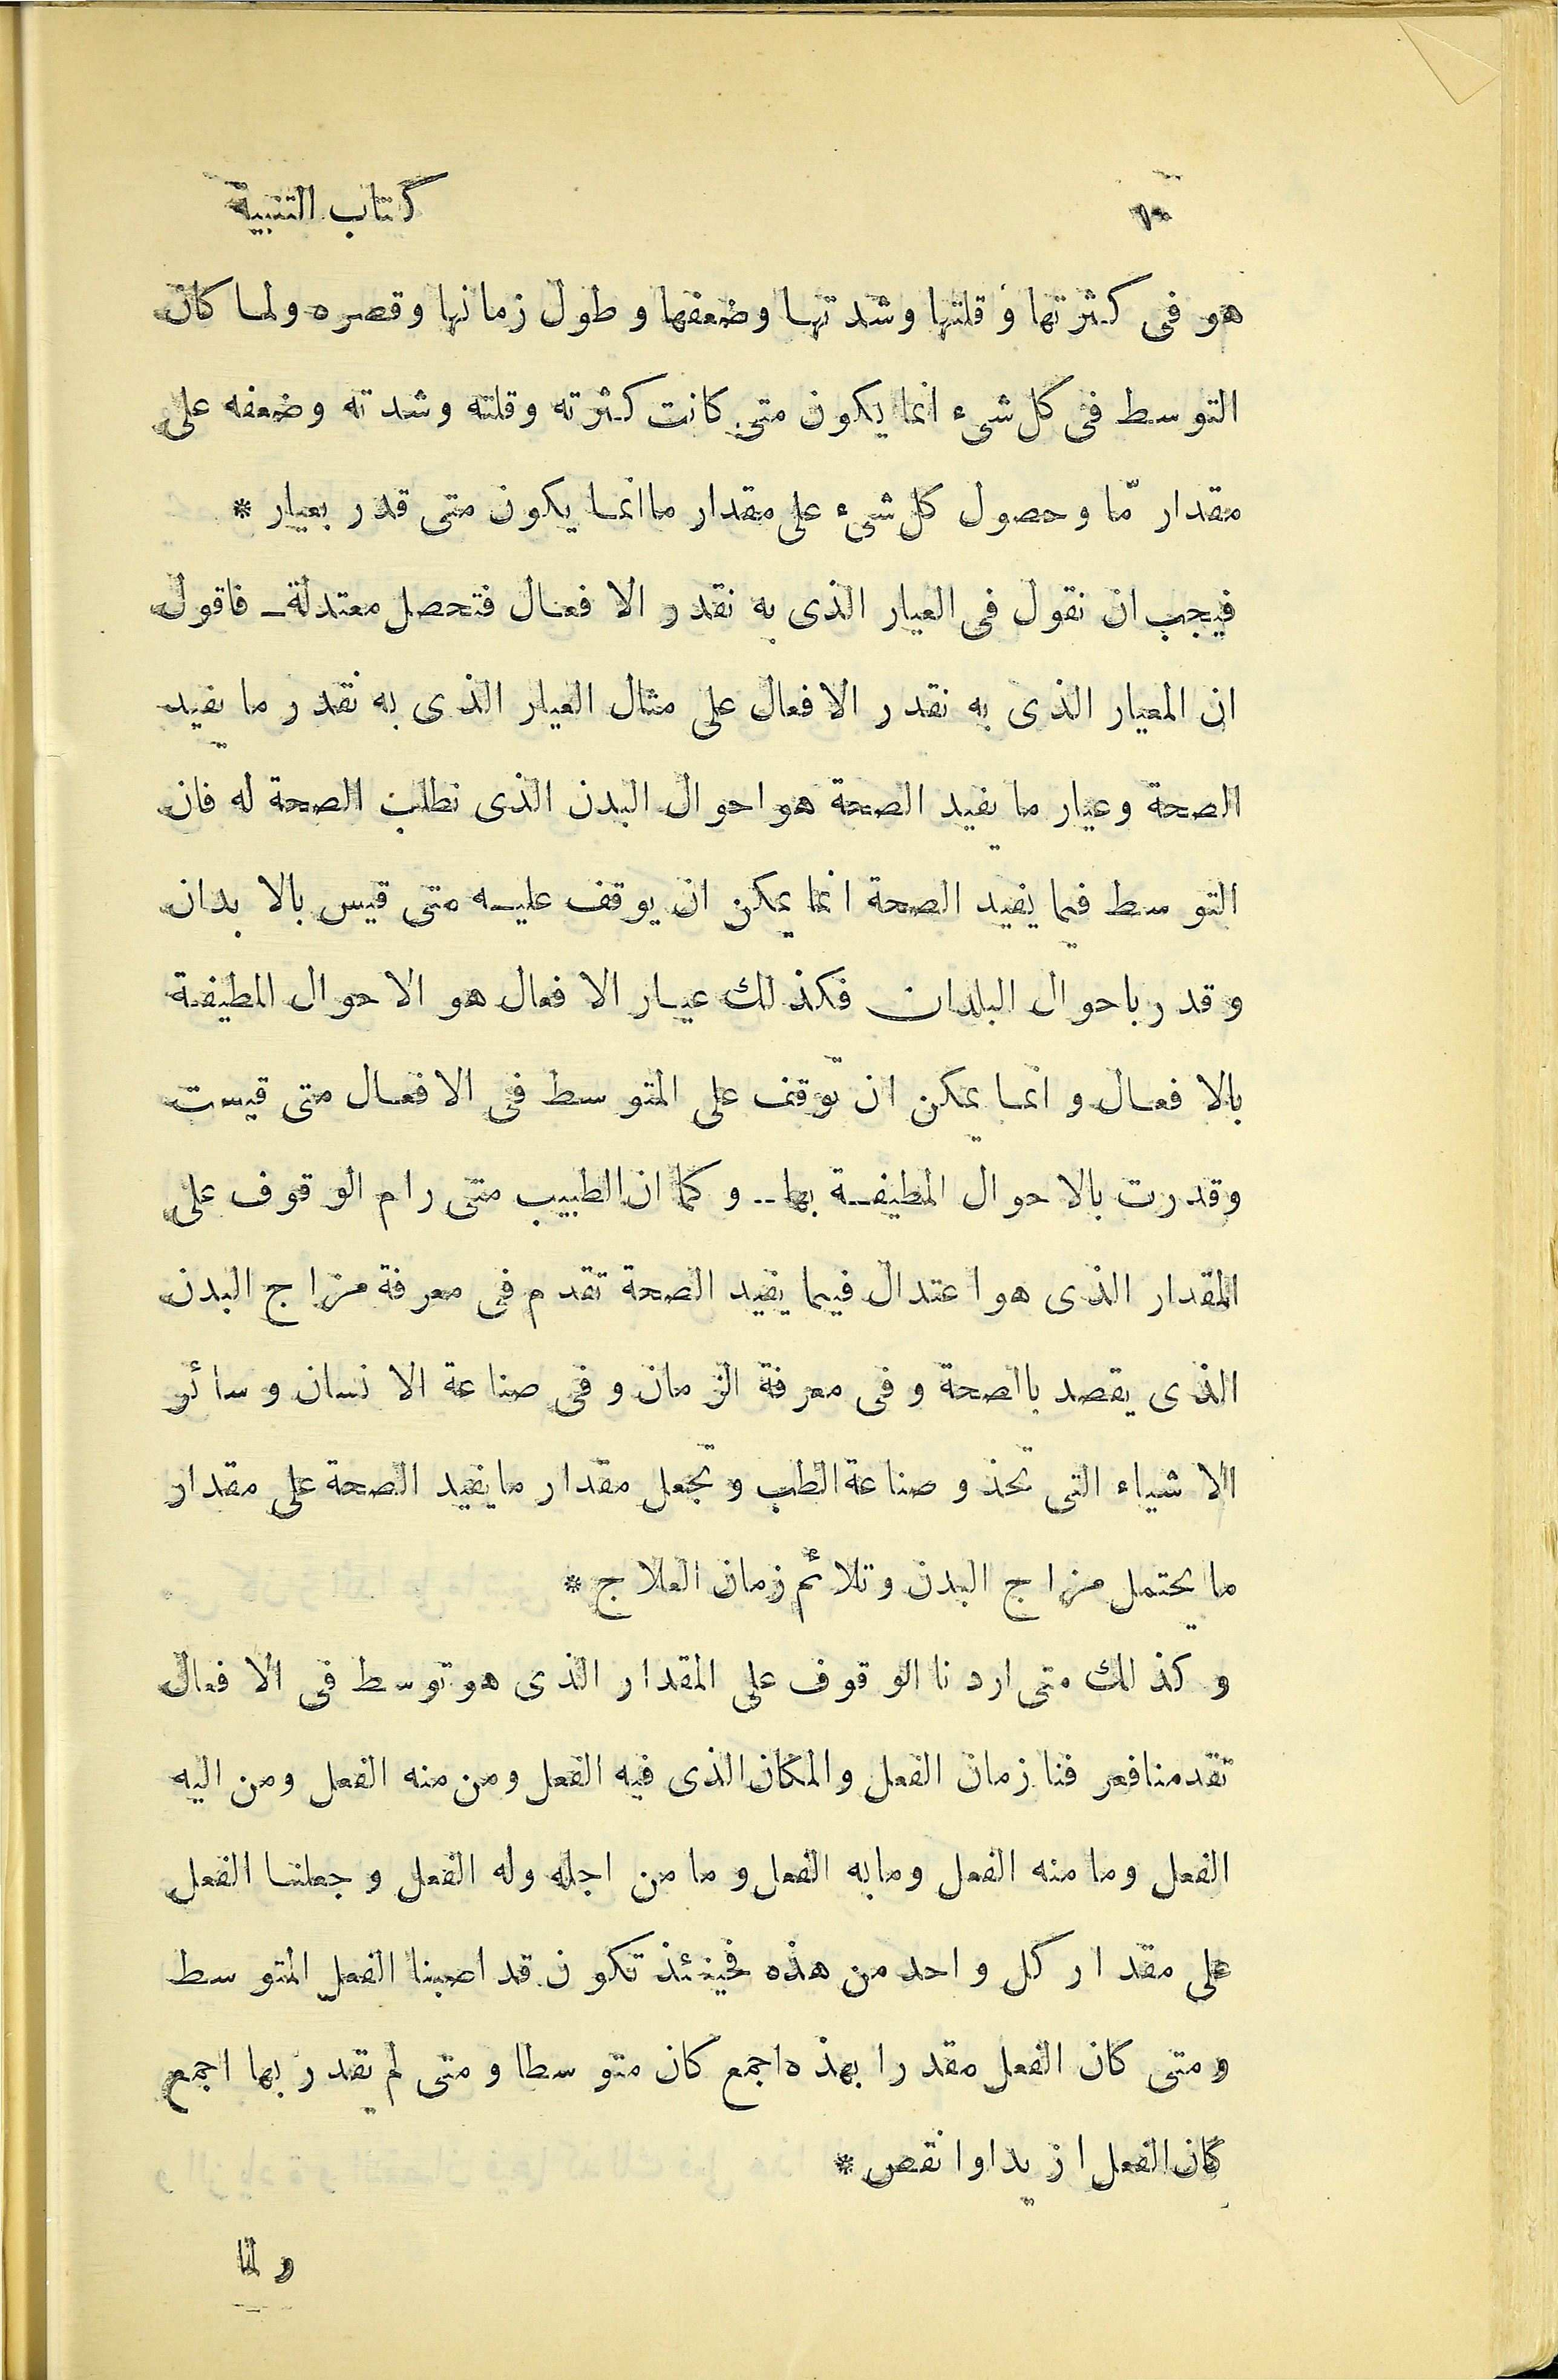 كتاب التنبيه ١٠
هو فى كثرتها و قلتها وشدتها وضعفها و طول زمانها و قصره ولما كان
التوسط فى كل شىء انما يكون متى كانت كثرته وقلته وشدته وضعفه على
مقدار مّا وحصول كل شىء على مقدار ما انما يكون متى قدر بعيار *
فيجب ان نقول فى العيار الذى به نقدر الافعال فتحصل معتدلة ـ فاقول
ان المعيار الذى به نقدر الافعال على مثال العيار الذى به نقدر ما يفيد
الصحة وعيار ما يفيد الصحة هو احوال البدن الذى نطلب الصحة له فان
التوسط فيما يفيد الصحة انما يمكن ان يوقف عليه متى قيس بالابدان
وقدر باحوال البلدان فكذلك عيار الافعال هو الاحوال المطيفة
بالافعال و انما يمكن ان توقف على المتوسط فى الافعال متى قيست
وقدرت بالاحوال المطيفة بها ـ و كما ان الطبيب متى رام الوقوف على
المقدار الذى هو اعتدال فيما يفيد الصحة تقدم فى معرفة مزاج البدن
الذى يقصد بالصحة و فى معرفة الزمان و فى صناعة الانسان وسائر
الاشياء التى تحذو صناعة الطب و تجعل مقدار ما يفيد الصحة على مقدار
ما يحتمل مزاج البدن وتلائم زمان العلاج *
و كذلك متى اردنا الوقوف على المقدار الذى هو توسط فى الافعال
تقدمنا فعرفنا زمان الفعل والمكان الذى فيه الفعل ومن منه الفعل ومن اليه
الفعل وما منه الفعل وما به الفعل و ما من اجله وله الفعل و جعلنا الفعل
على مقدار كل واحد من هذه فحينئذ تكون قد اصبنا الفعل المتوسط
و متى كان الفعل مقدرا بهذه اجمع كان متوسطا و متى لم يقدر بها اجمع
كان الفعل ازيد او انقص *
و لما